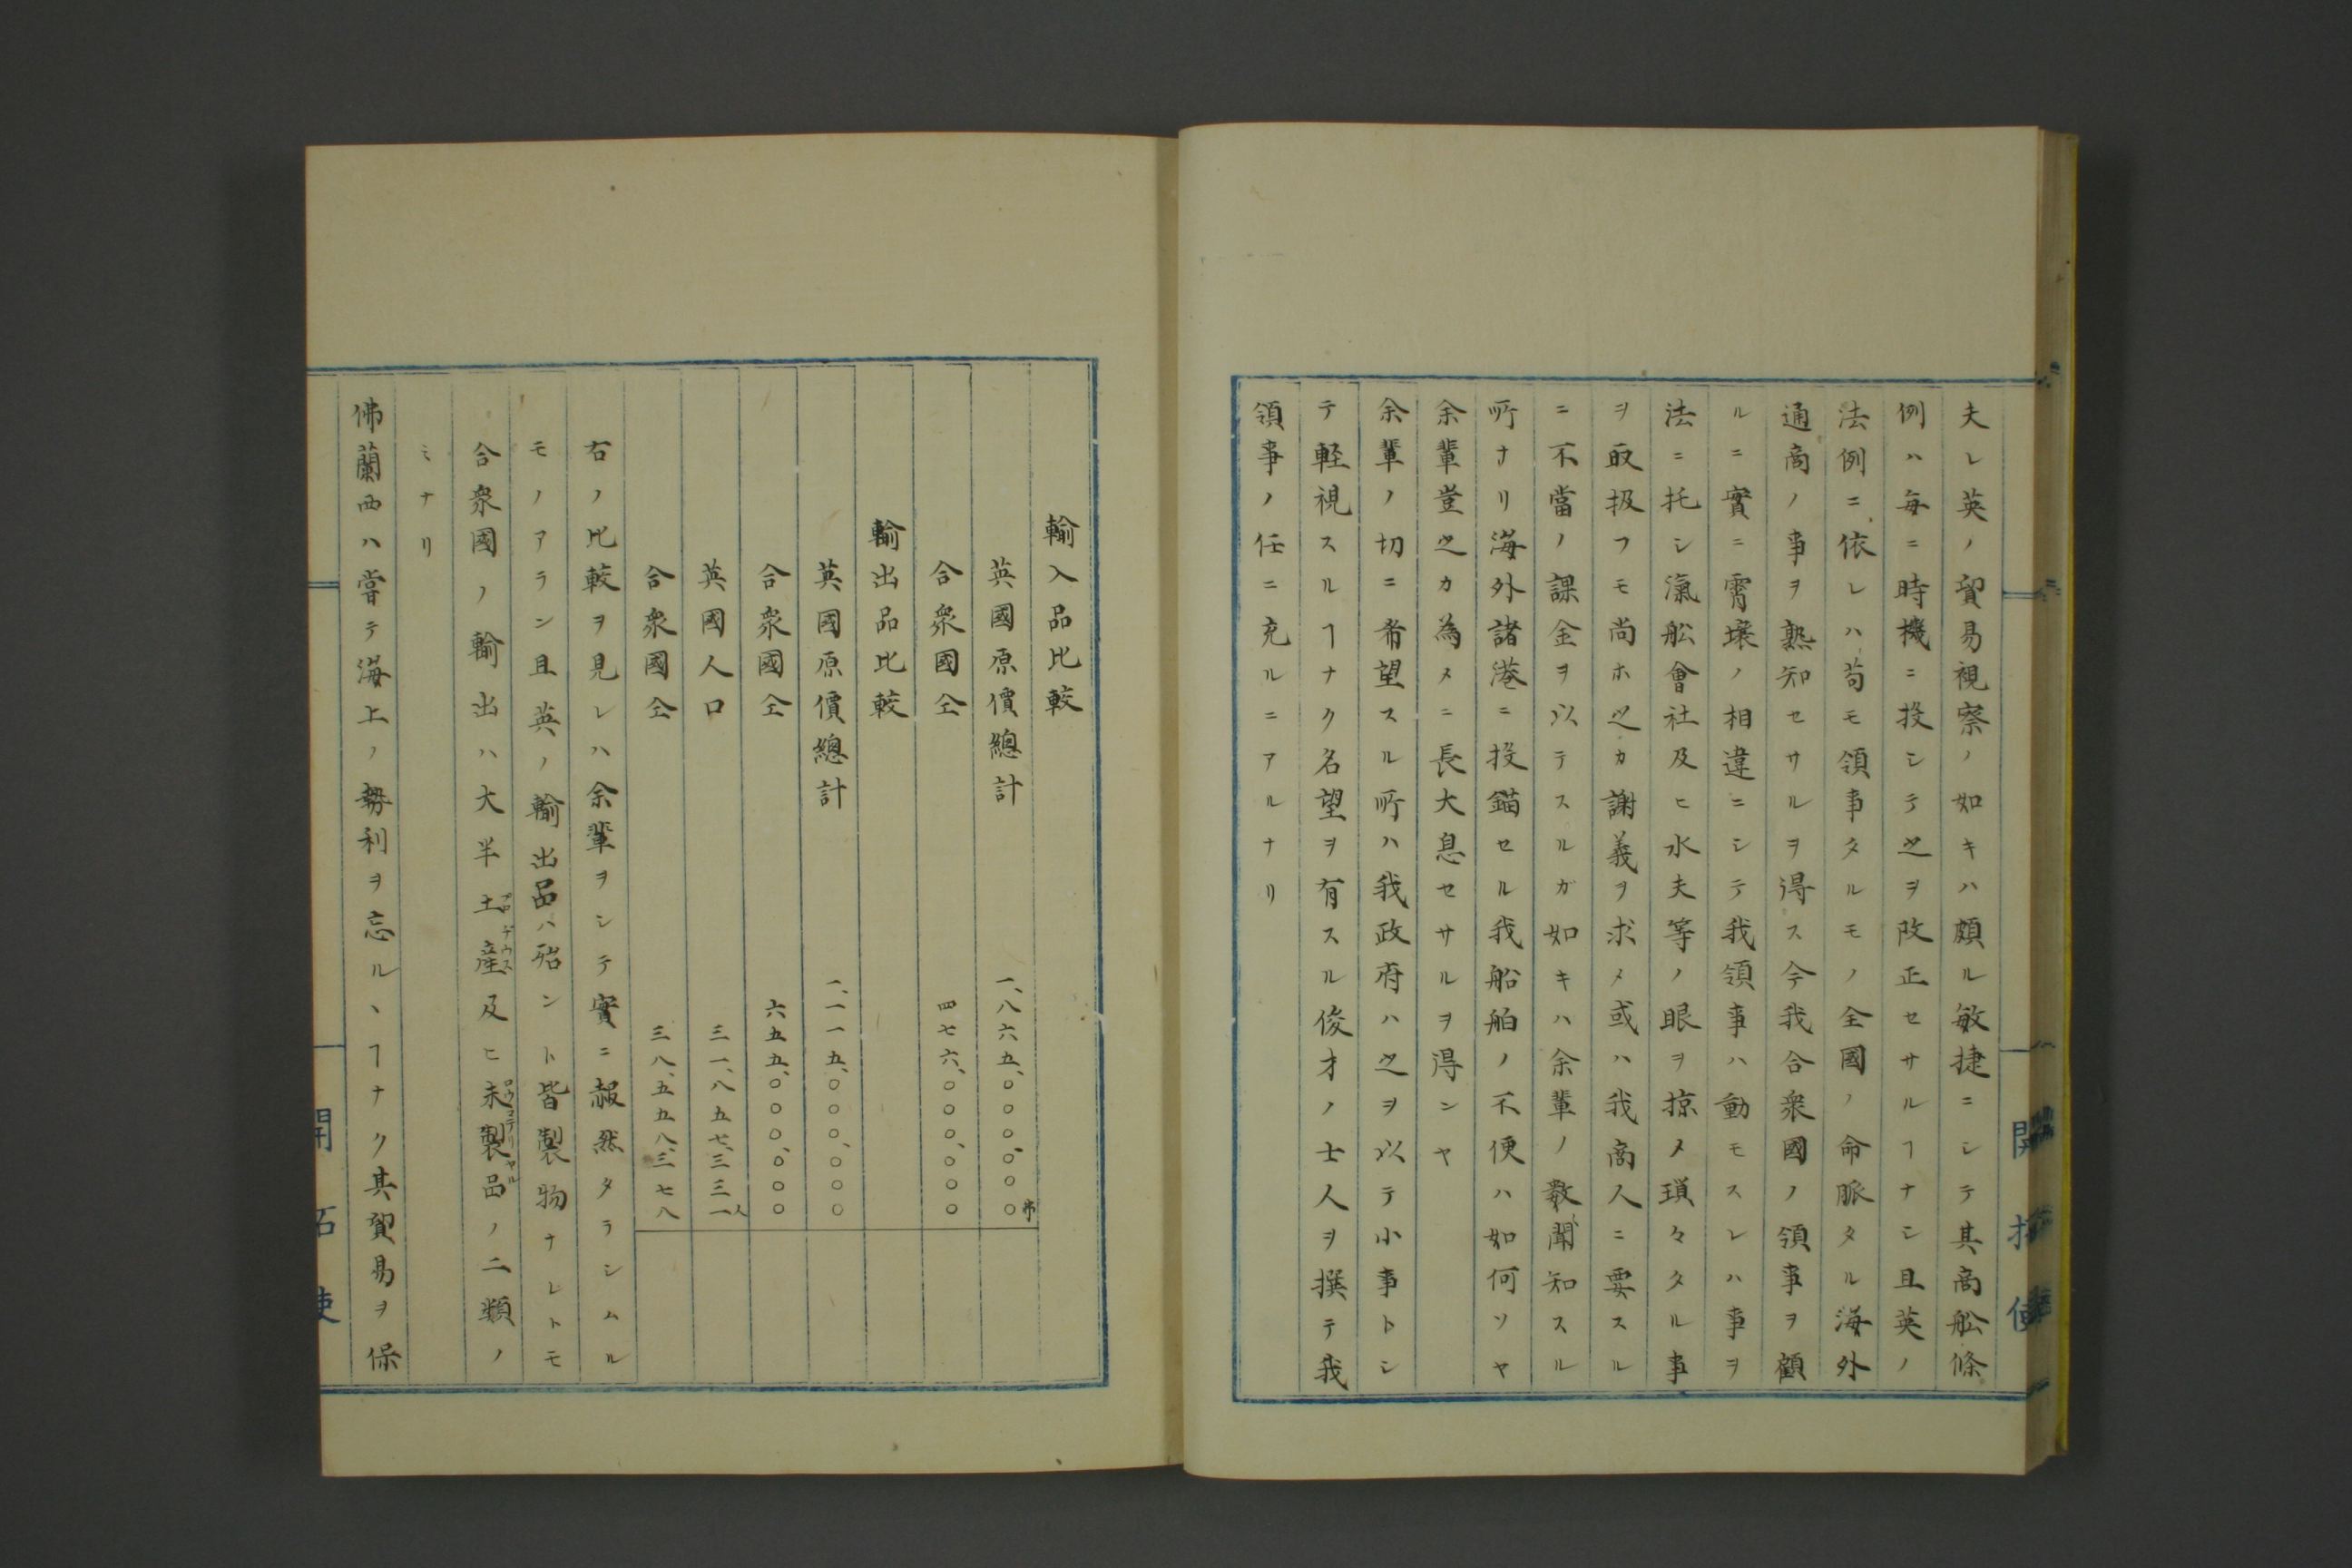 夫レ英ノ貿易視察ノ如キハ頗ル敏捷ニシテ其商舩條
例ハ毎ニ時機ニ投シテ之ヲ改正セサルヿナシ且英ノ
法例ニ依レハ苟モ領事タルモノ全國ノ命脈タル海外
通商ノ事ヲ熟知セサルヲ得ス今我合衆國ノ領事ヲ顧
ルニ實ニ霄壌ノ相違ニシテ我領事ハ動モスレハ事ヲ
法ニ托シ滊舩會社及ヒ水夫等ノ眼ヲ掠メ瑣々タル事
ヲ取扱フモ尚ホ之カ謝義ヲ求メ或ハ我商人ニ要スル
ニ不當ノ課金ヲ以テスルガ如キハ余輩ノ數聞知スル
所ナリ海外諸港ニ投錨セル我船舶ノ不便ハ如何ソヤ
余輩豈之カ為メニ長大息セサルヲ得ンヤ
余輩ノ切ニ希望スル所ハ我政府ハ之ヲ以テ小事トシ
テ軽視スルヿナク名望ヲ有スル俊才ノ士人ヲ撰テ我
領事ノ任ニ充ルニアルナリ
開拓使
輸入品比較
英國原價總計 一、八六五、〇〇〇、〇〇〇弗
合衆國仝 四七六、〇〇〇、〇〇〇
輸出品比較
英國原價總計 一、一一五、〇〇〇、〇〇〇
合衆國仝 六五五、〇〇〇、〇〇〇
英國人口 三一、八五七、三三一人
合衆國仝 三八、五五八、三七八
右ノ比較ヲ見レハ余輩ヲシテ實ニ赧然タラシムル
モノアラン且英ノ輸出品ハ殆ント皆製物ナレトモ
合衆國ノ輸出ハ大半土産及ヒ未製品ノ二類ノ
ミナリ
佛蘭西ハ嘗テ海上ノ勢利ヲ忘ルヽヿナク其貿易ヲ保
開拓使